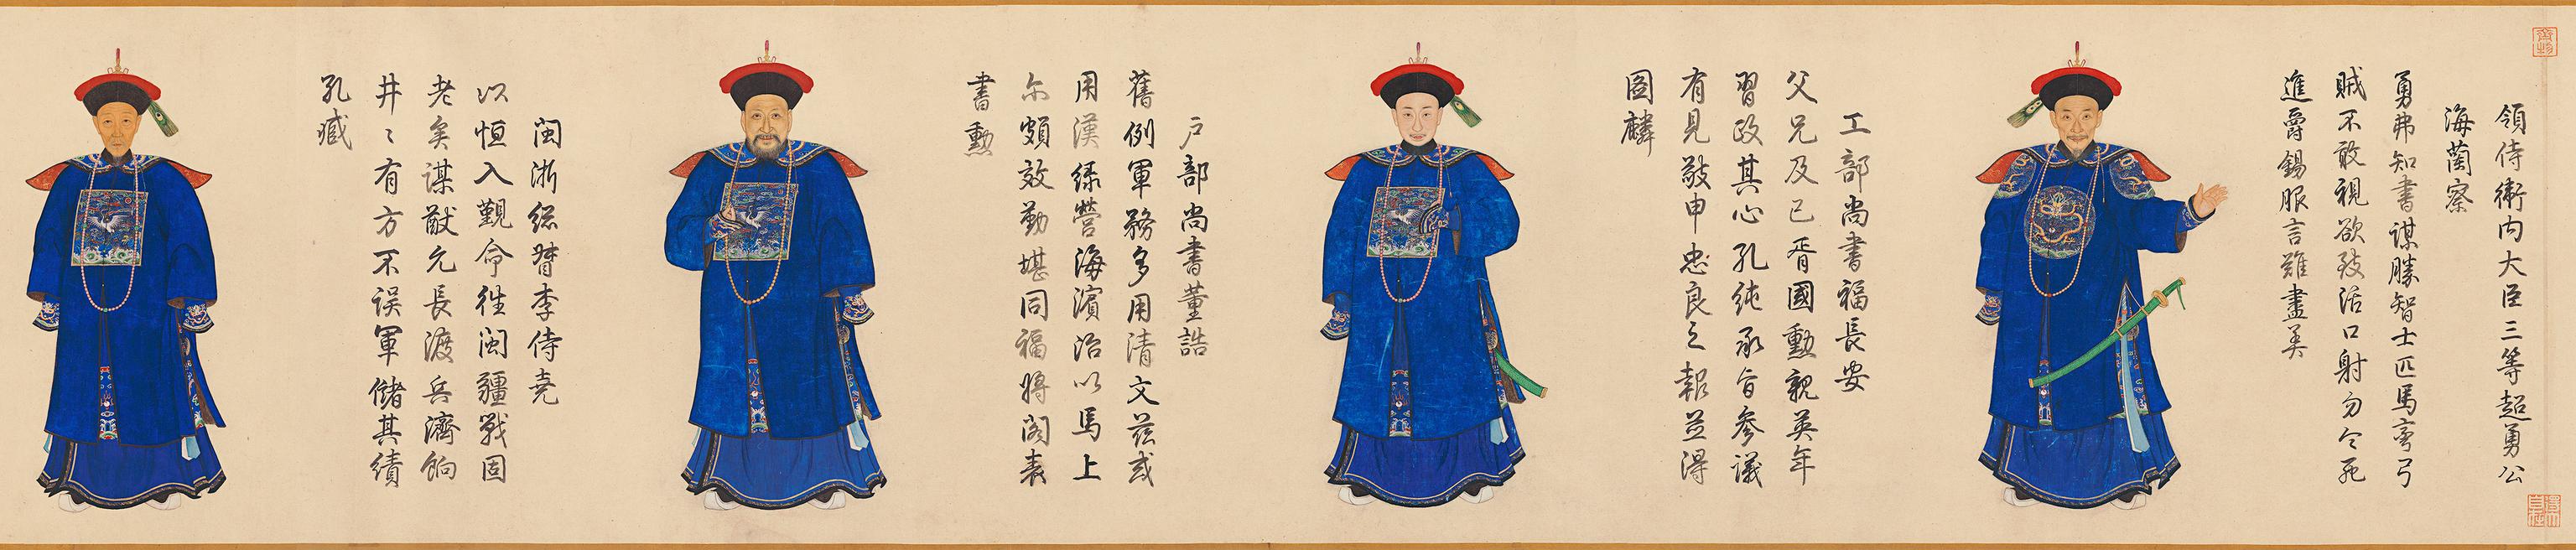 領侍衛内大臣三等超勇公
海蘭察
勇弗知書謀勝智士匹馬彎弓
賊不敢視欲致活口射勿令死
進爵錫服言難盡美
工部尚書福長安
父兄及己胥國勳親英年
習政其心孔純承旨參議
有見敬申忠良之報並得
圖麟
戶部尚書董誥
舊例軍務多用清文茲或
用漢綠營海濱治以馬上
尔頗效勤堪同福將閣表
書勳
閩浙總督李侍堯
以恒入覲命往閩疆戰固
老矣謀猷允長渡兵濟餉
井〻有方不误軍儲其績
孔臧